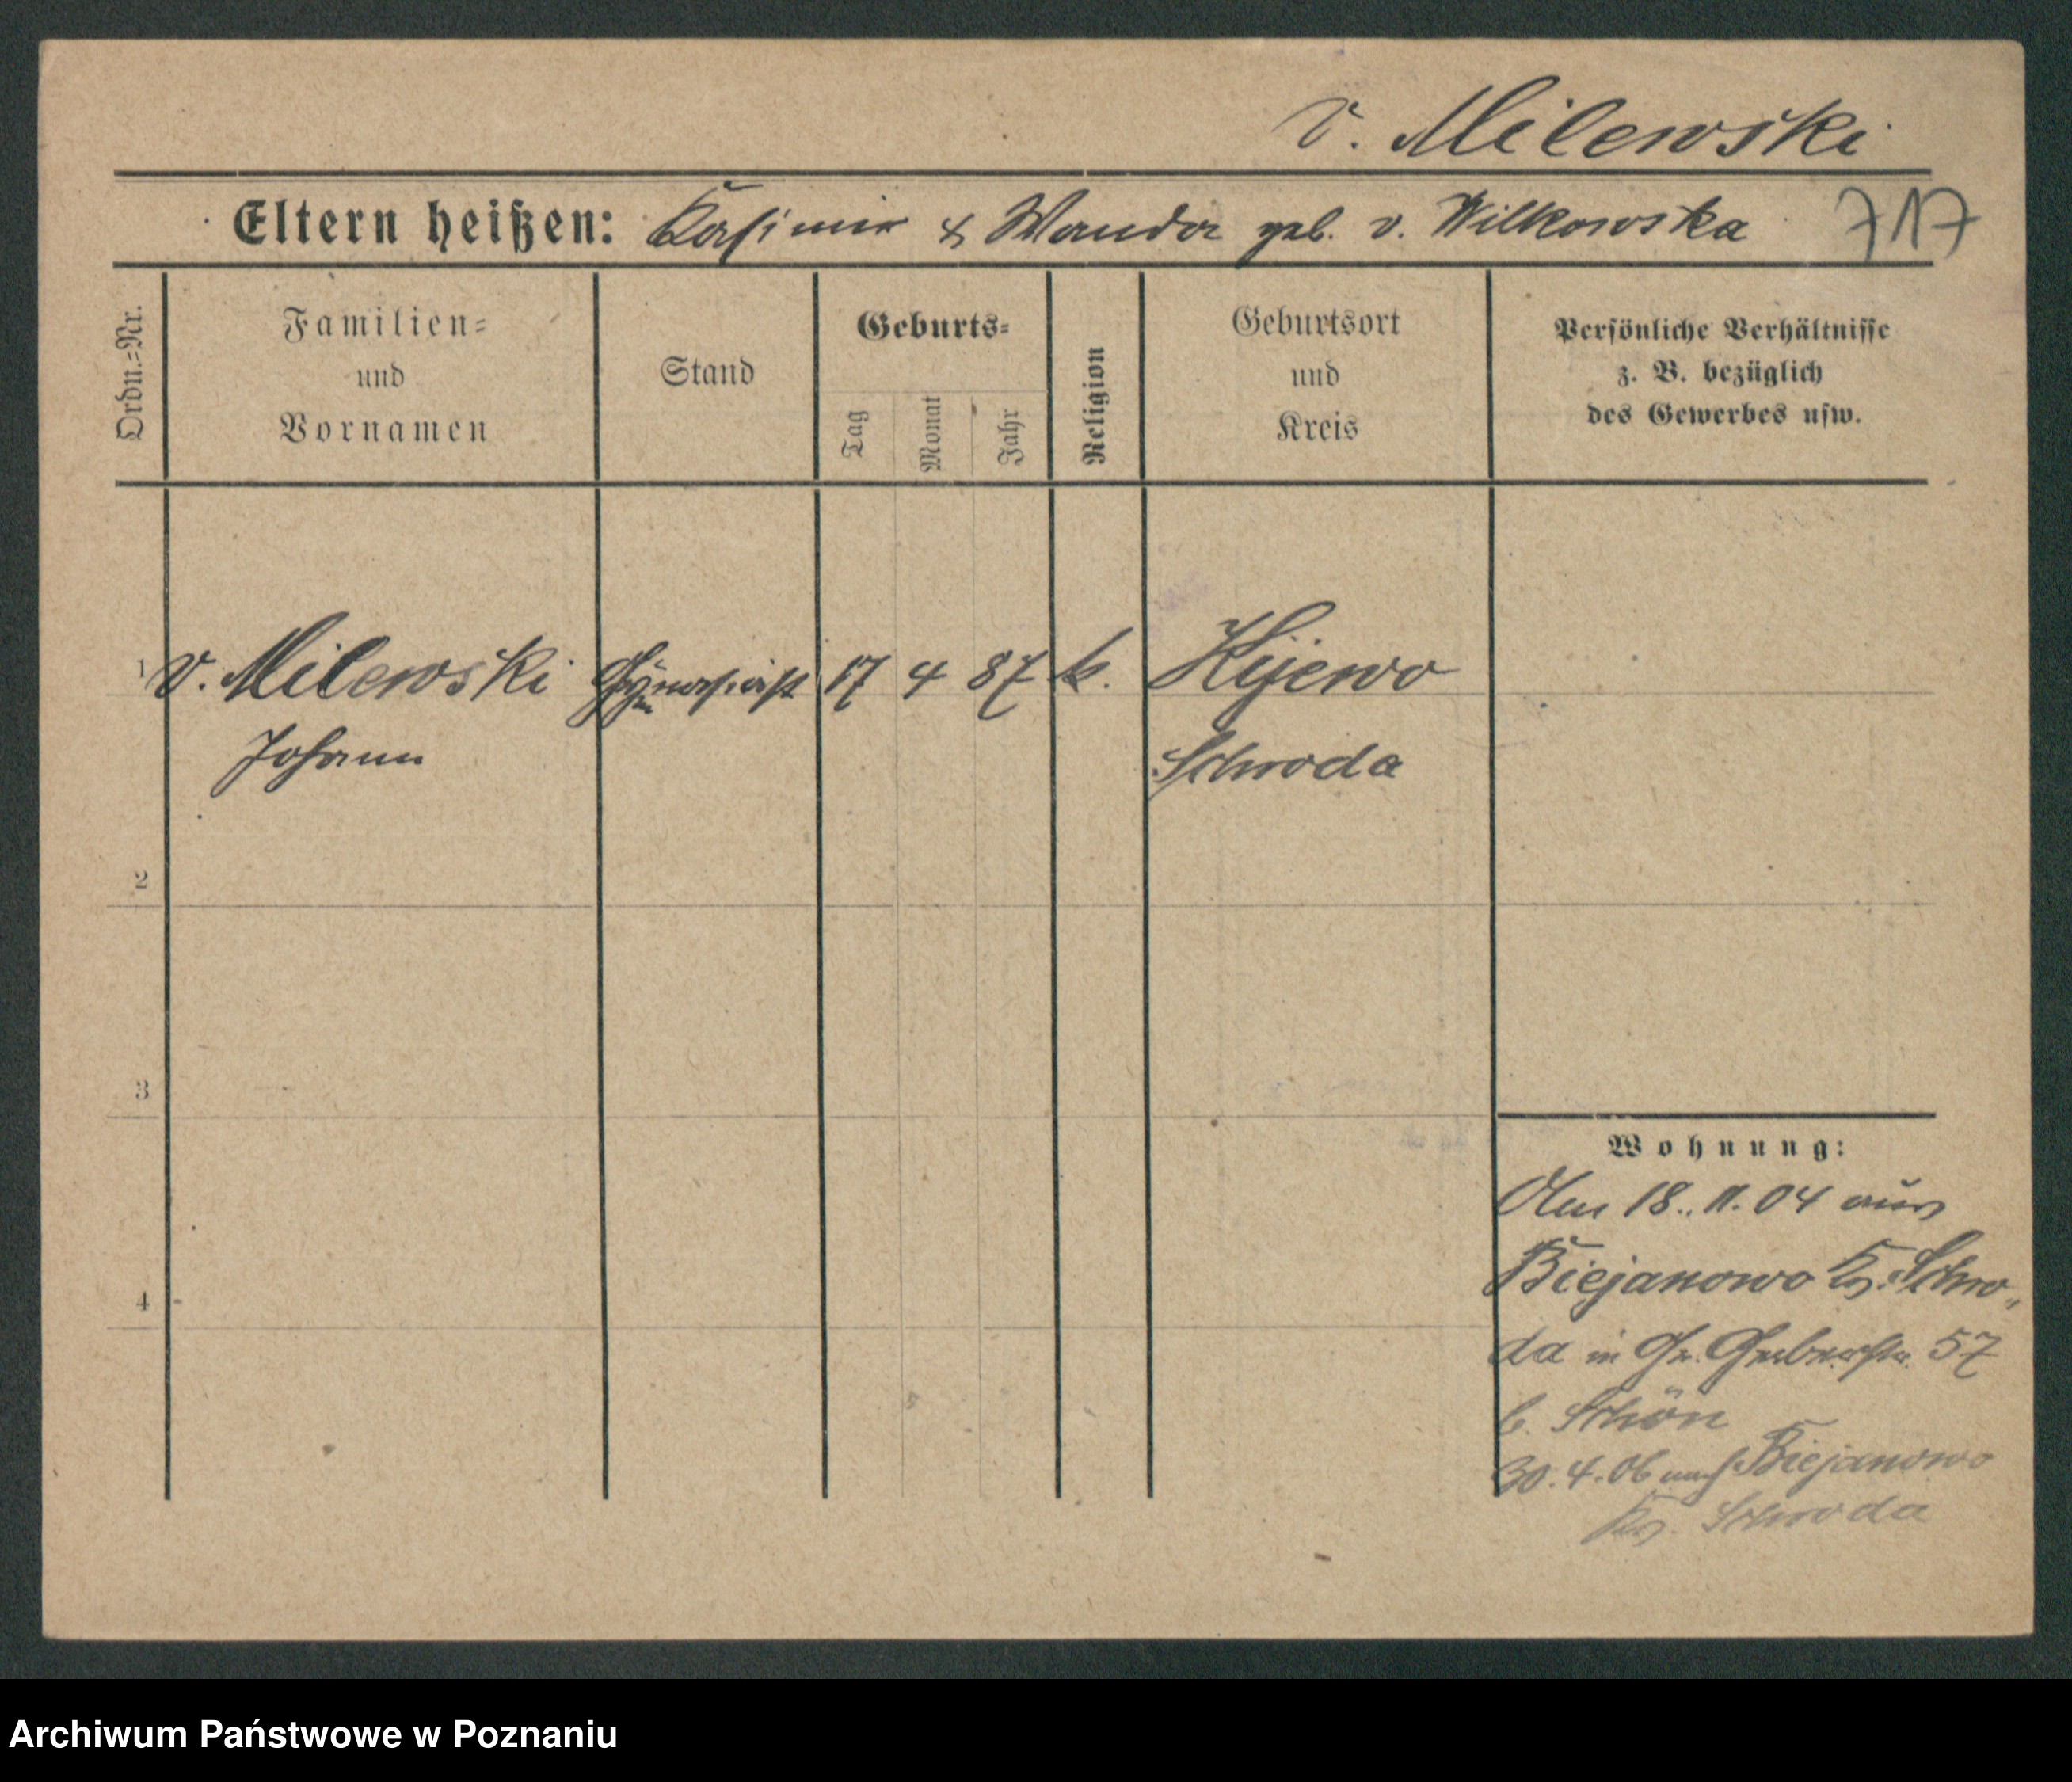 v. Milewski
Eltern heißen: Kasimir & Wanda geb. v. Wilkowska 717
Ordn.=Nr.
Familien=
und
Vornamen
Stand
Geburts=
Tag
Monat
Jahr
Religion
Geburtsort
und
Kreis
Persönliche Verhältnisse
z. B. bezüglich
des Gewerbes usw.
1 v. Milewski Gymnasiast 17 4 87 k. Kijewo
Johann Schroda
2
3
4
Wohnung:
Am 18. 11. 04 aus
Biejanowo Kr. Schro„
da in Gr. Gerberstr. 57
b. Schön
30. 4. 06 nach Biejanowo
Kr. Schroda
Archiwum Państwowe w Poznaniu